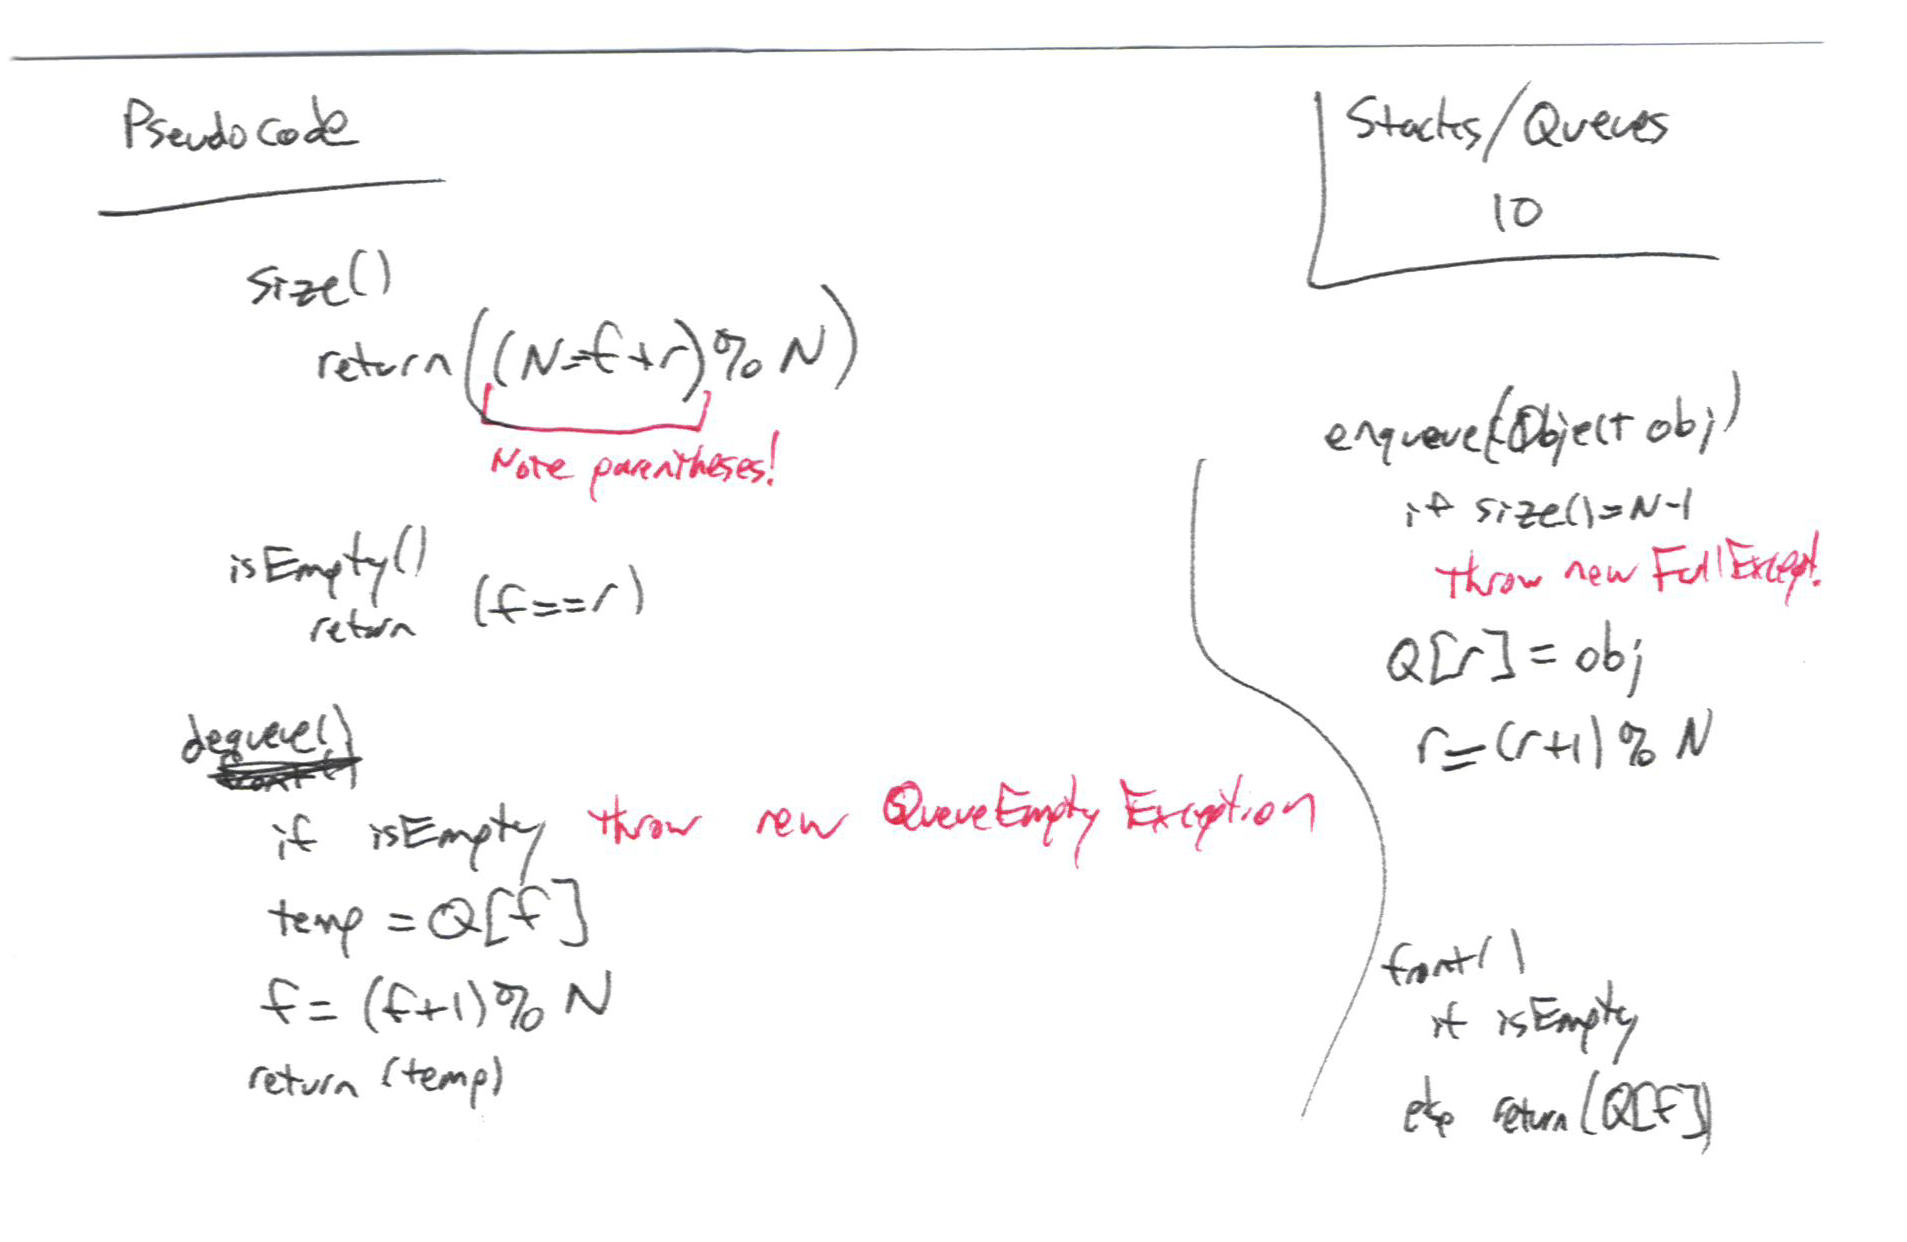 Pseudocode
Stacks/Queues
10
size()
return((N-f+r)%N)
Note parentheses!
isEmpty()
return (f==r)
dequeue()
if isEmpty throw new QueueEmptyException
temp = Q[f]
f = (f+1)%N
return (temp)
enqueue(Object obj)
if size()=N-1
throw new FullExcept.
Q[r] = obj
r=(r+1)%N
front()
if isEmpty
else return(Q[f])